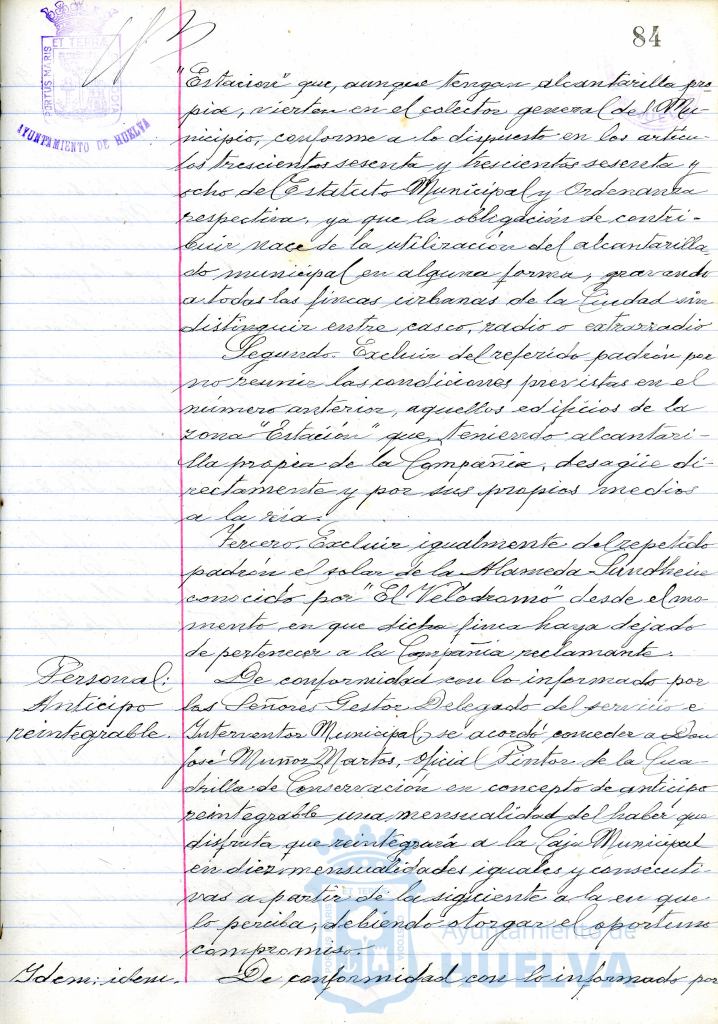 84
ET TERRÆ
PORTUS MARIS
CUSTODIA
AYUNTAMIENTO DE HUELVA
"Estacion" que, aunque tengan alcantarilla pro
pia, vierten en el colector general del Mu-
nicipio, conforme a lo dispuesto en los articu-
los trescientos sesenta y trescientos sesenta y
ocho del Estatuto Municipal y Ordenanza
respectiva, ya que la obligación de contri-
buir nace de la utilización del alcantarilla-
do municipal en alguna forma, gravando
a todas las fincas urbanas de la Ciudad sin
distinguir entre casco, radio o extrarradio
Segundo. Excluir del referido padrón por
no reunir las condiciones previstas en el
número anterior, aquellos edificios de la
zona "Estación" que, teniendo alcantari-
lla propia de la Compañia, desagüe di-
rectamente y por sus propios medios
a la ría.
Tercero. Excluir igualmente del repetido
padrón el solar de la Alameda Sundheim
conocido por "El Velodromo" desde el mo-
mento en que dicha finca haya dejado
de pertenecer a la Compañia reclamante.
Personal:
Anticipo
reintegrable.
De conformidad con lo informado por
los Señores Gestor Delegado del servicio e
Interventor Municipal, se acordó conceder a Don
José Muñoz Martos, oficial Pintor de la Cua-
drilla de Conservación en concepto de anticipo
reintegrable una mensualidad del haber que
disfruta que reintegrará a la Caja Municipal
en diez mensualidades iguales y consecuti-
vas a partir de la siguiente a la en que
lo perciba, debiendo otorgar el oportuno
compromiso.
Idem: idem.
De conformidad con lo informado por
Ayuntamiento de
HUELVA